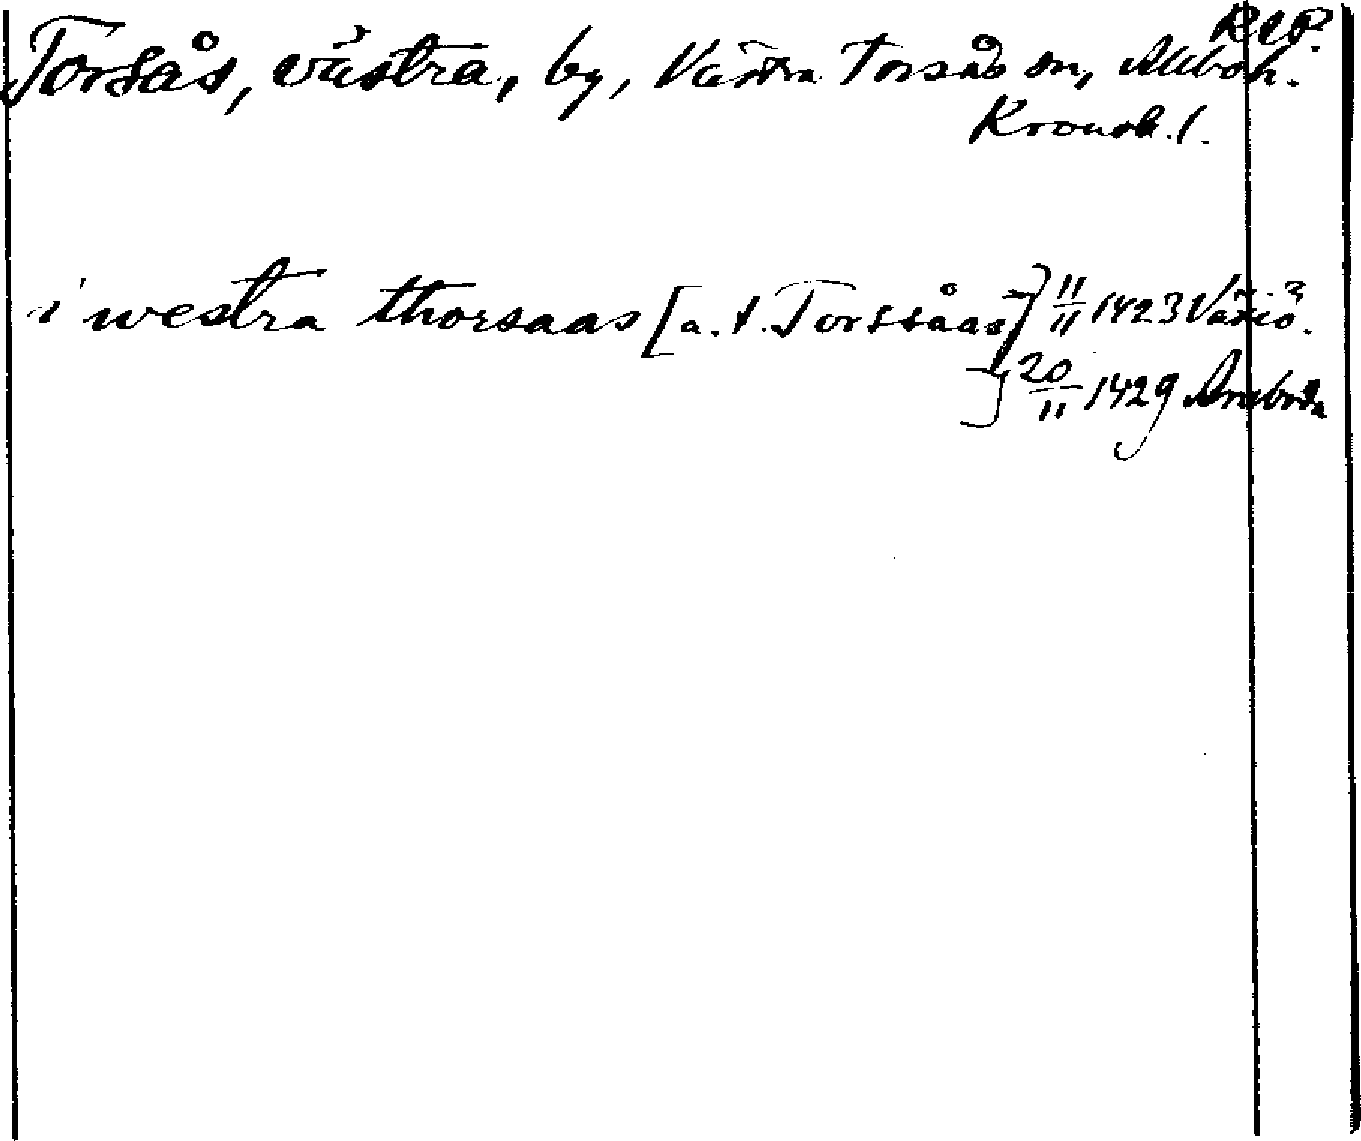 Rep.
Torsås, västra, by, Västra Torsås sn, Allboh.
Kronob. l.
i westra thorsaas [a. t. Torssåås] 11/11 1423 Växiö.
20/11 1429